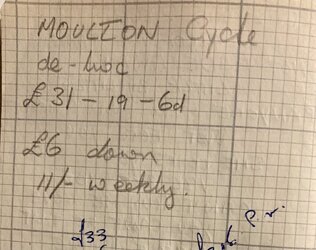 MOULTON Cycle
de-luc
£31-19-6d
£6 down
11/- weekly.
p.w.
£33